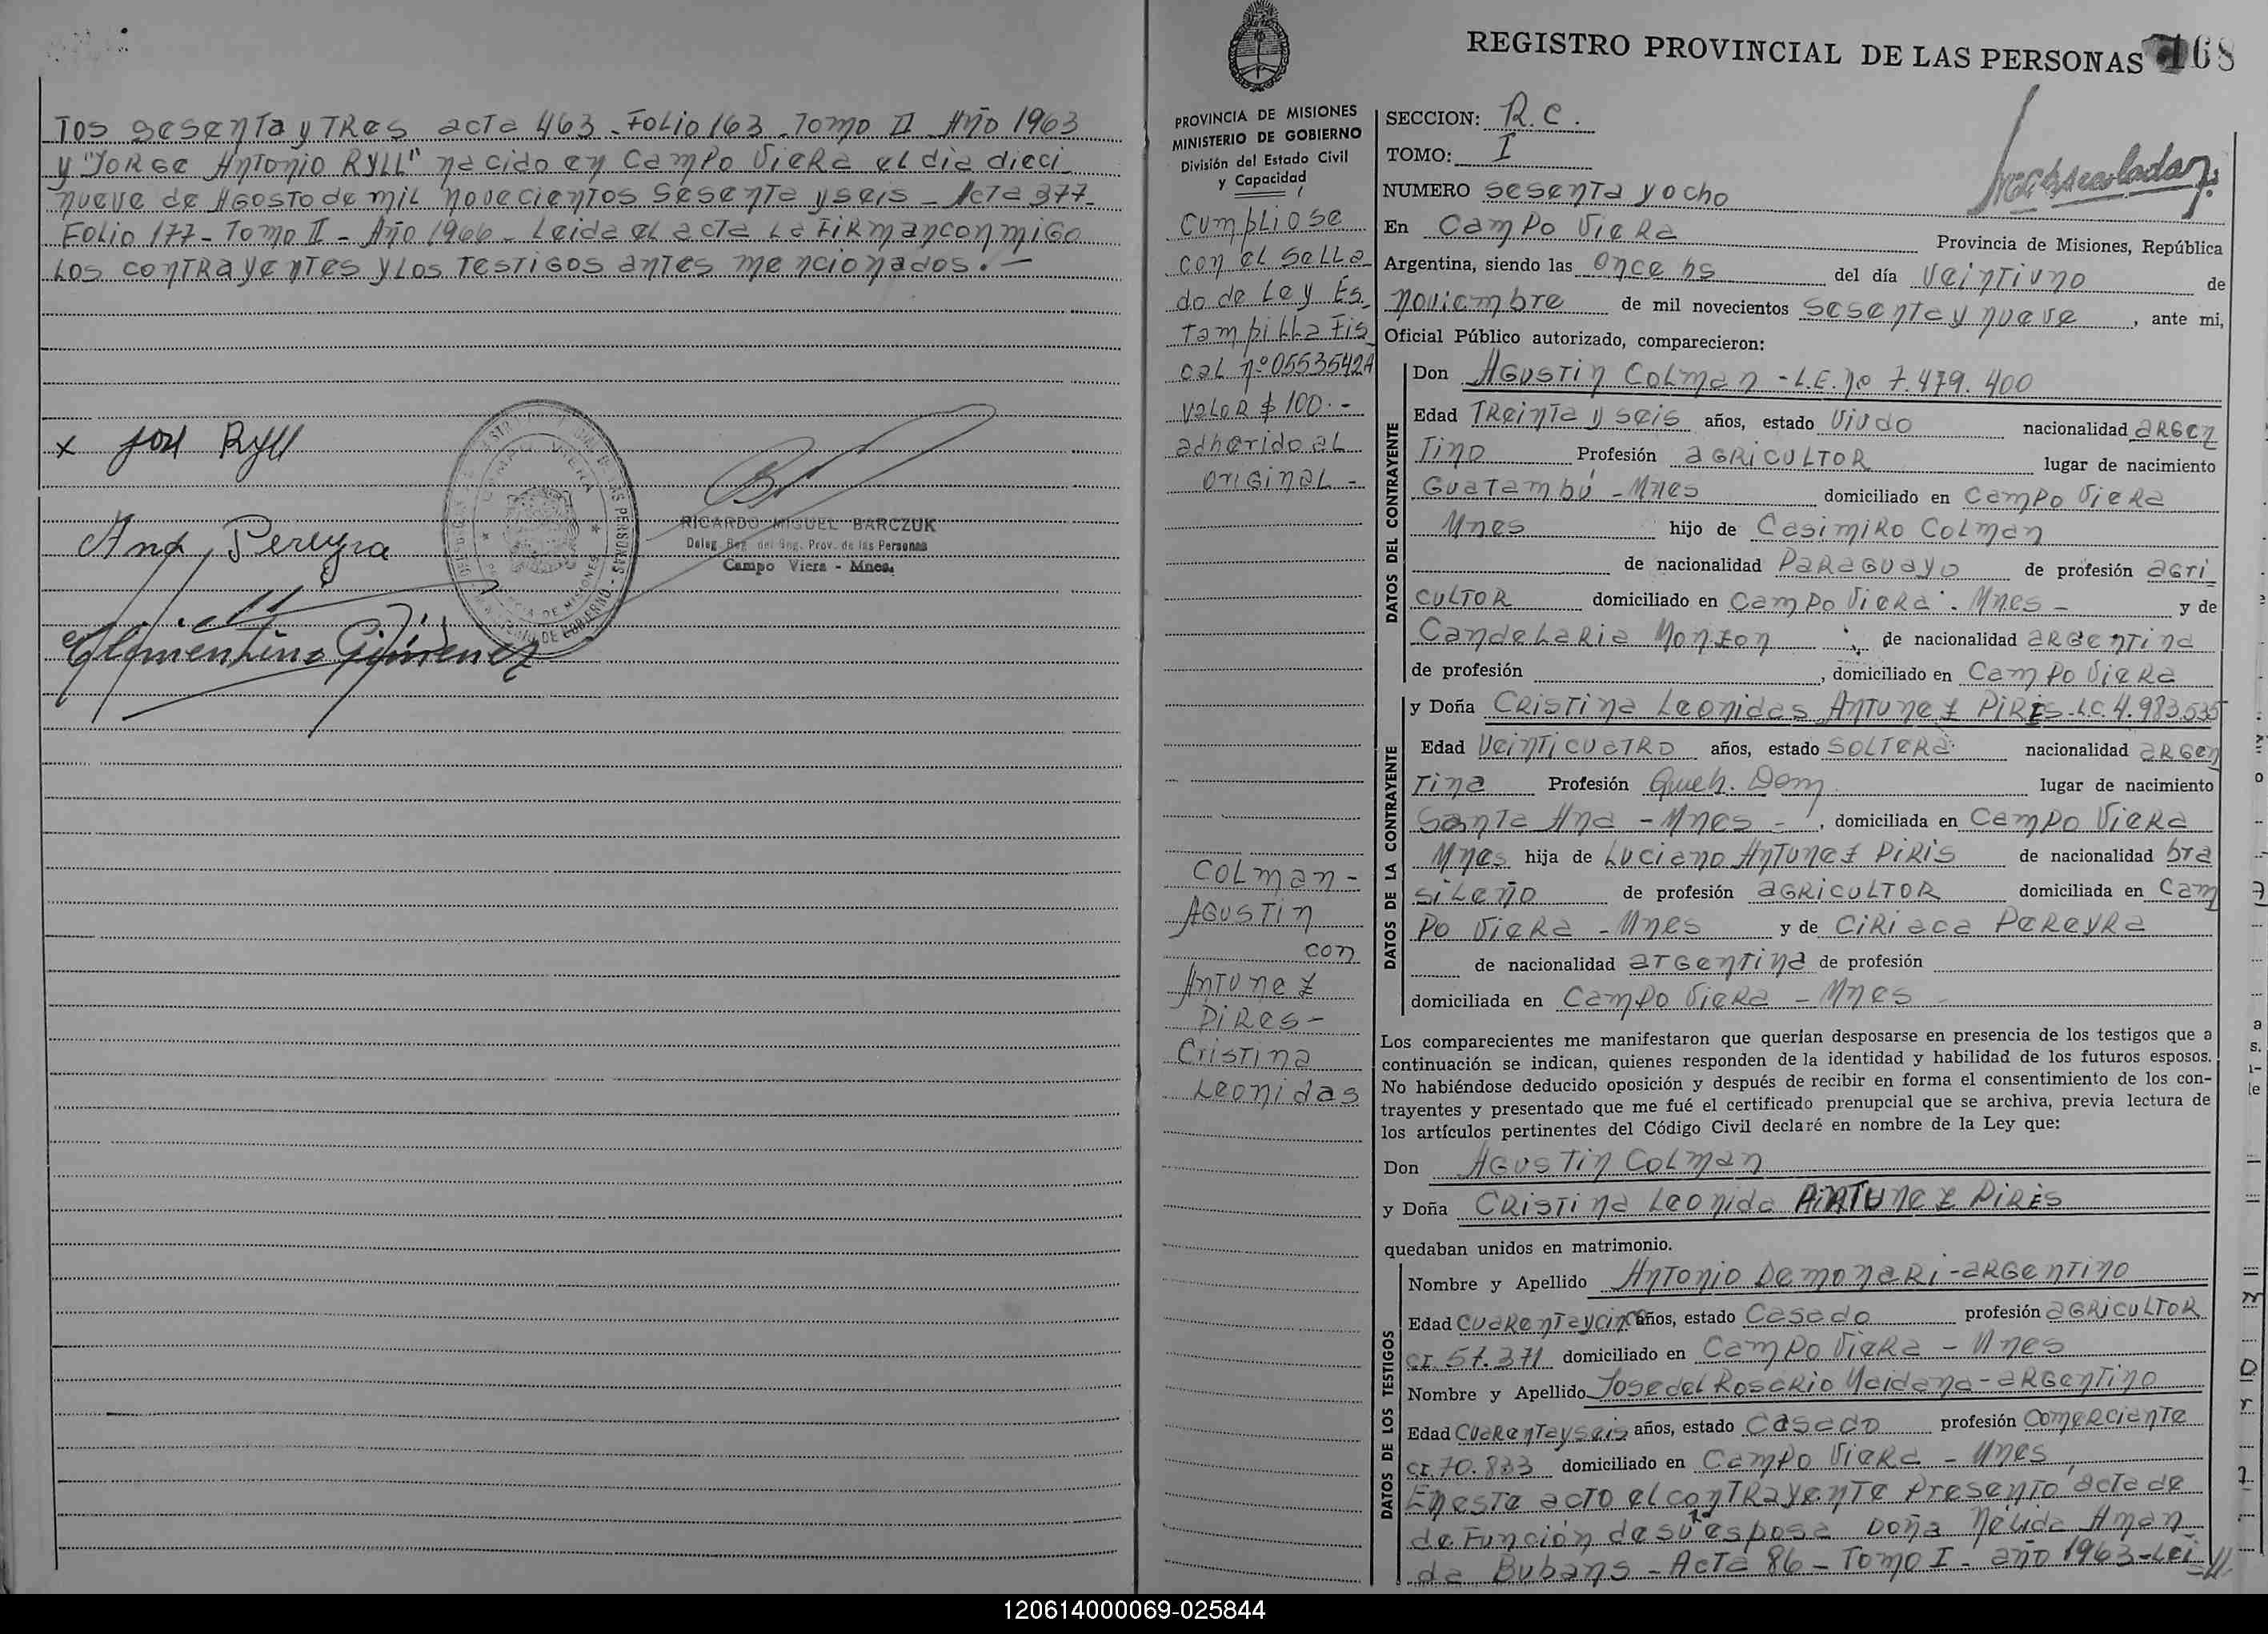 tos sesenta y tres acta 463 - Folio 163 - Tomo II Año 1963
y "JORGE ANTONIO RYLL" nacido en Campo Viera el dia dieci
nueve de Agosto de mil novecientos sesenta y seis - Acta 377-
Folio 177 - Tomo II - Año 1966 - Leida el acta la firman conmigo
los contrayentes y los testigos antes mencionados. -
x José Ryll
Ana Pereyra
Clementino Giménez
RICARDO MIGUEL BARCZUK
Deleg. Reg. del Reg. Prov. de las Personas
Campo Viera - Mnes.
REGISTRO PROVINCIAL DE LAS PERSONAS 168
PROVINCIA DE MISIONES
MINISTERIO DE GOBIERNO
División del Estado Civil
y Capacidad
Cumpliose
con el sella
do de Ley Es
tampilla Fis
cal nº 0553542A
valor $ 100.-
adherido al
original -
Colman -
Agustin
con
Antunez
Pires -
Cristina
Leonidas
SECCION: R.C.
TOMO: I
NUMERO sesenta y ocho
En Campo Viera Provincia de Misiones, República
Argentina, siendo las once hs del día veintiuno de
noviembre de mil novecientos sesenta y nueve, ante mi,
Oficial Público autorizado, comparecieron:
DATOS DEL CONTRAYENTE
Don Agustin Colman - L.E. nº 7.479.400
Edad treinta y seis años, estado viudo nacionalidad argen
tino Profesión agricultor lugar de nacimiento
Guatambú - Mnes domiciliado en Campo Viera
Mnes hijo de Casimiro Colman
de nacionalidad Paraguayo de profesión agri
cultor domiciliado en Campo Viera. Mnes - y de
Candelaria Monzon de nacionalidad argentina
de profesión , domiciliado en Campo Viera
DATOS DE LA CONTRAYENTE
y Doña Cristina Leonidas Antunez Pires - L.C. 4.983.535
Edad veinticuatro años, estado soltera nacionalidad argen
tina Profesión Queh. Dom. lugar de nacimiento
Santa Ana - Mnes - , domiciliada en Campo Viera
Mnes hija de Luciano Antunez Piris de nacionalidad bra
sileño de profesión agricultor domiciliada en Cam
po Viera - Mnes y de Ciriaca Pereyra
de nacionalidad argentina de profesión
domiciliada en Campo Viera - Mnes -
Los comparecientes me manifestaron que querían desposarse en presencia de los testigos que a
continuación se indican, quienes responden de la identidad y habilidad de los futuros esposos.
No habiéndose deducido oposición y después de recibir en forma el consentimiento de los con-
trayentes y presentado que me fué el certificado prenupcial que se archiva, previa lectura de
los artículos pertinentes del Código Civil declaré en nombre de la Ley que:
Don Agustin Colman
y Doña Cristina Leonida Antunez Pires
quedaban unidos en matrimonio.
DATOS DE LOS TESTIGOS
Nombre y Apellido Antonio Demonari - argentino
Edad cuarenta y cinco años, estado casado profesión agricultor
CI. 57.371 domiciliado en Campo Viera - Mnes
Nombre y Apellido Jose del Rosario Maidana - argentino
Edad cuarenta y seis años, estado casado profesión comerciante
CI. 70.833 domiciliado en Campo Viera - Mnes
En este acto el contrayente presentó acta de
defunción de su 1ra esposa Doña Nélida Aman
da Bubans - Acta 86 - Tomo I - año 1963 - Lei //
120614000069-025844